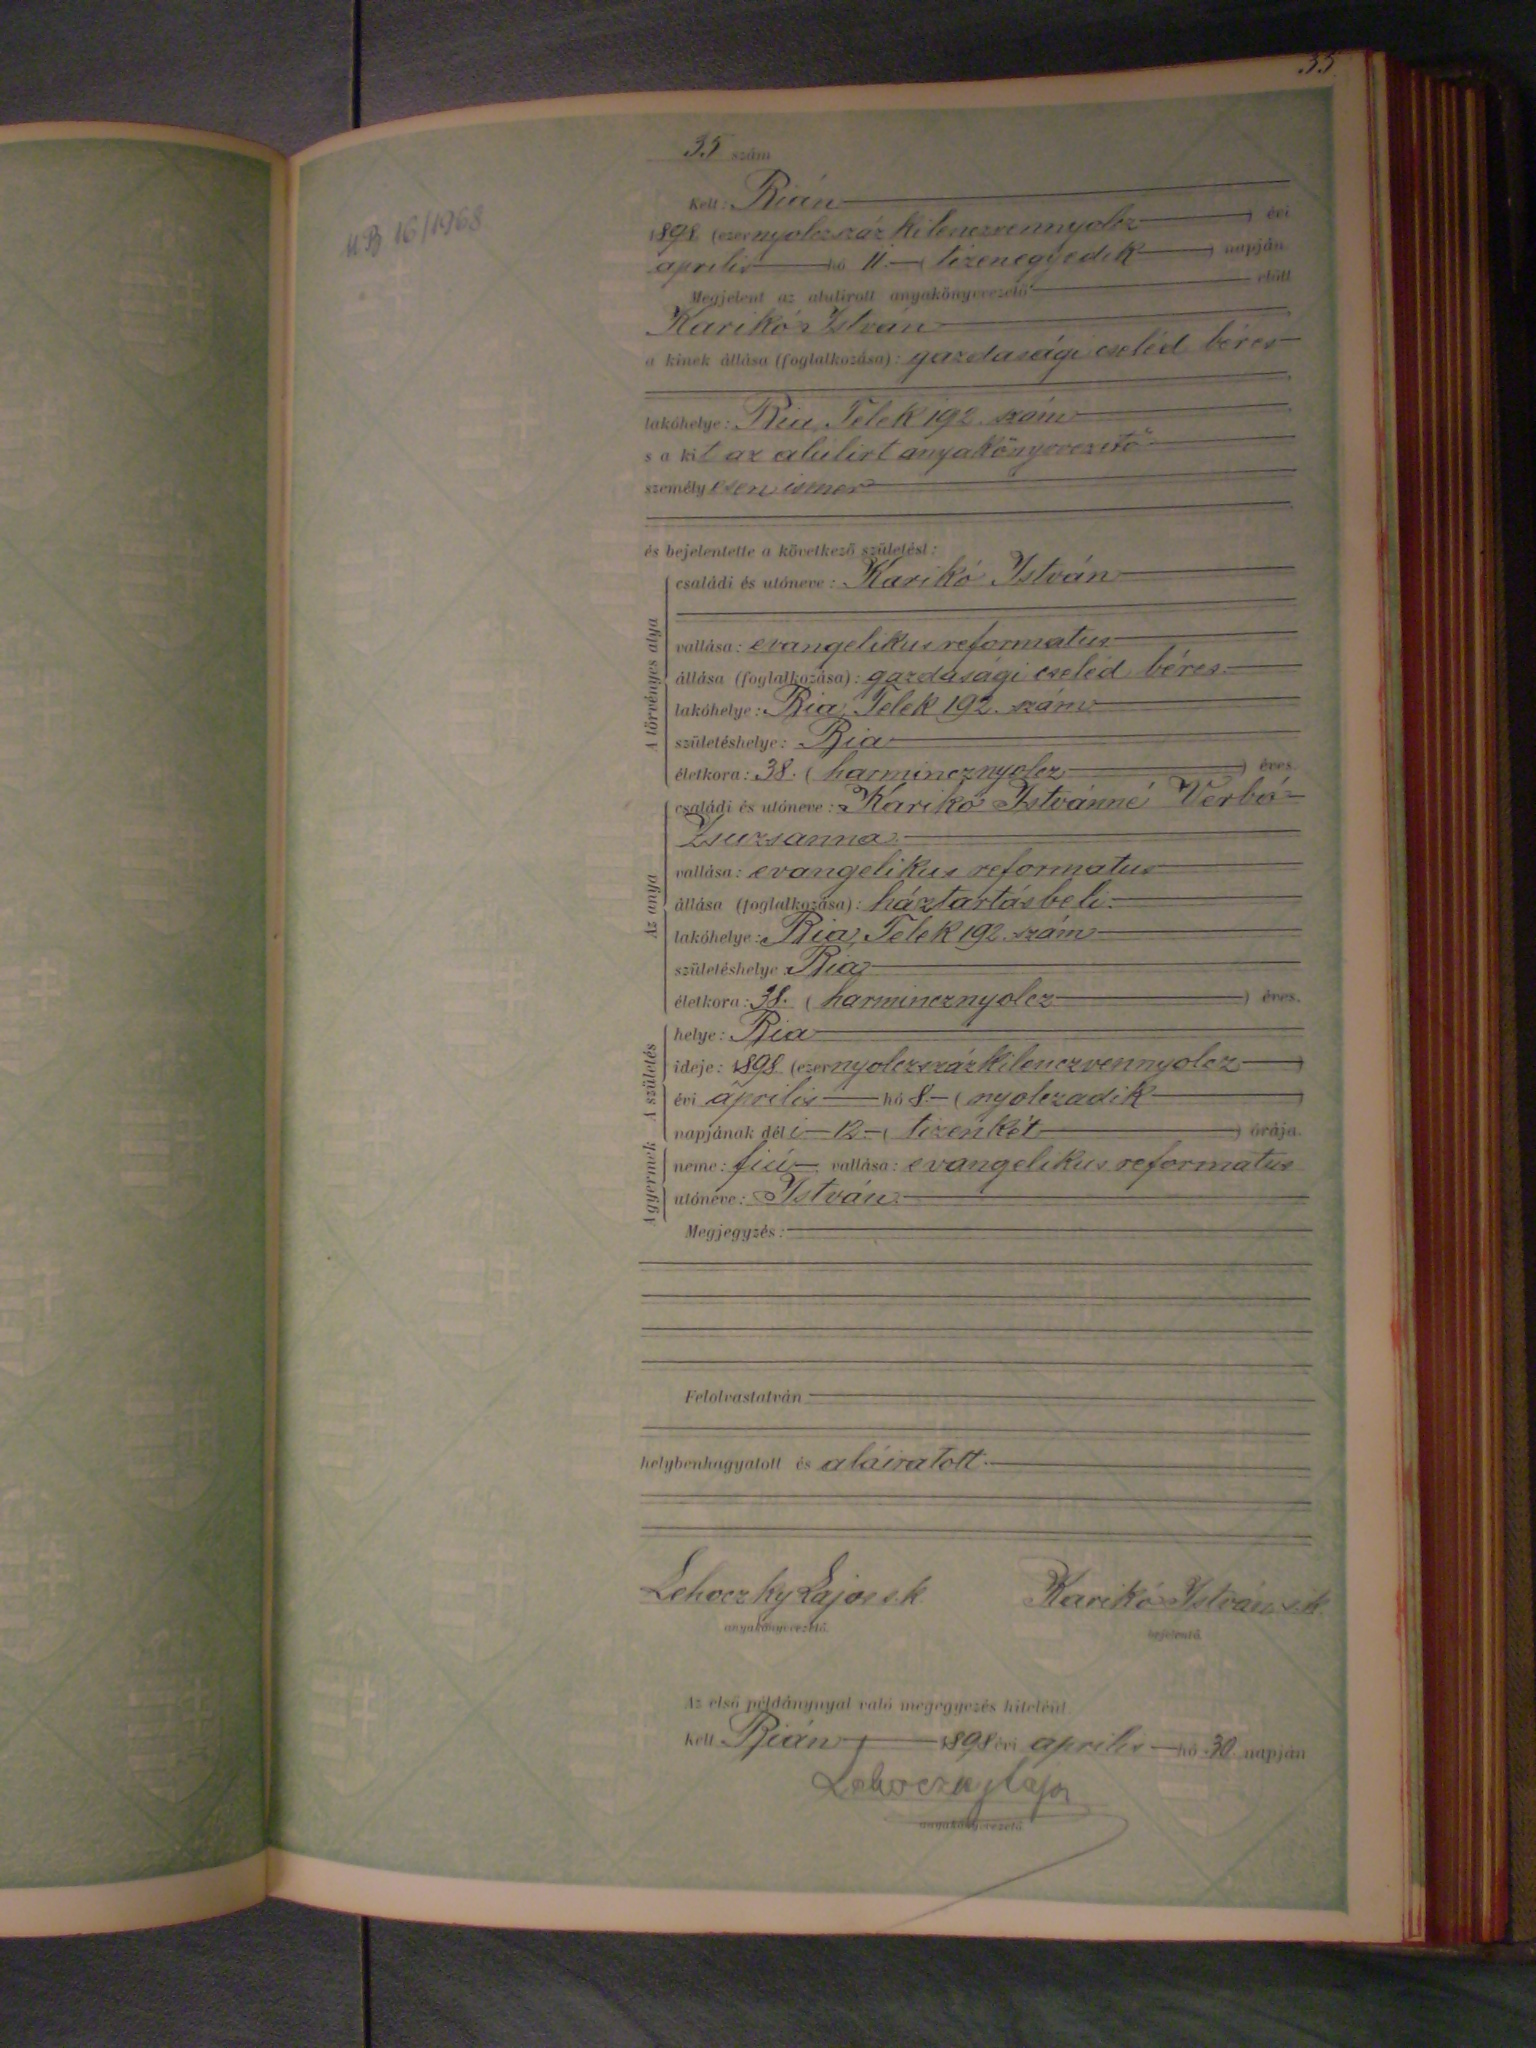 35
35 szám
Kelt: Rián
1898 (ezernyolczszáz kilenczvennyolcz) évi
április hó 11. (tizenegyedik) napján
Megjelent az alulirott anyakönyvvezető előtt
Karikó István
a kinek állása (foglalkozása): gazdasági cseléd béres
lakóhelye: Ria, Telek 192. szám
s a kit az alulirt anyakönyvvezető
személyesen ismer
és bejelentette a következő születést:
A törvényes atya
családi és utóneve: Karikó István
vallása: evangelikus reformatus
állása (foglalkozása): gazdasági cseléd béres.
lakóhelye: Ria, Telek 192. szám
születéshelye: Ria
életkora: 38. (harmincznyolcz) éves.
Az anya
családi és utóneve: Karikó Istvánné Verbó
Zsuzsanna
vallása: evangelikus reformatus
állása (foglalkozása): háztartásbeli.
lakóhelye: Ria, Telek 192. szám
születéshelye: Ria
életkora: 38. (harmincznyolcz) éves.
A születés
helye: Ria
ideje: 1898 (ezernyolczszázkilenczvennyolcz)
évi április hó 8. (nyolczadik)
napjának déli 12. (tizenkét) órája.
A gyermek
neme: fiú vallása: evangelikus reformatus
utóneve: István
Megjegyzés:
Felolvastatván
helybenhagyatott és aláiratott.
Lehoczky Lajos s.k. Karikó István s.k.
anyakönyvvezető. bejelentő.
Az első példánynyal való megegyezés hiteléül
Kelt Rián 1898 évi április hó 30. napján
Lehoczky Lajos
anyakönyvvezető
16/1968